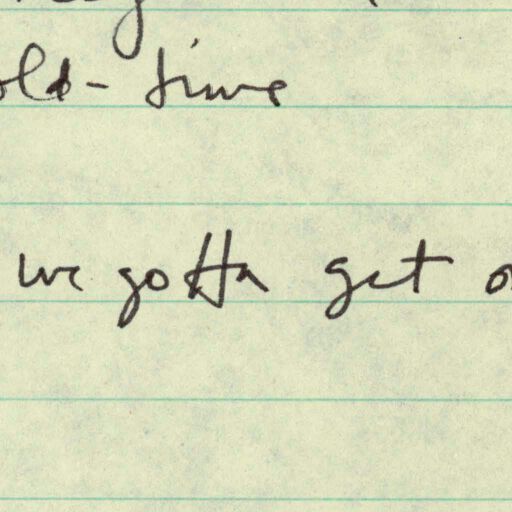 old-time
we gotta get